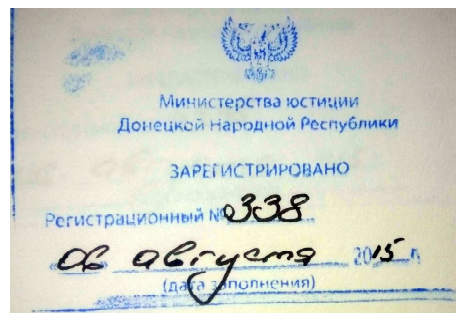 Министерства юстиции
Донецкой Народной Республики
ЗАРЕГИСТРИРОВАНО
Регистрационный № 338
06 августа 2015 г.
(дата заполнения)